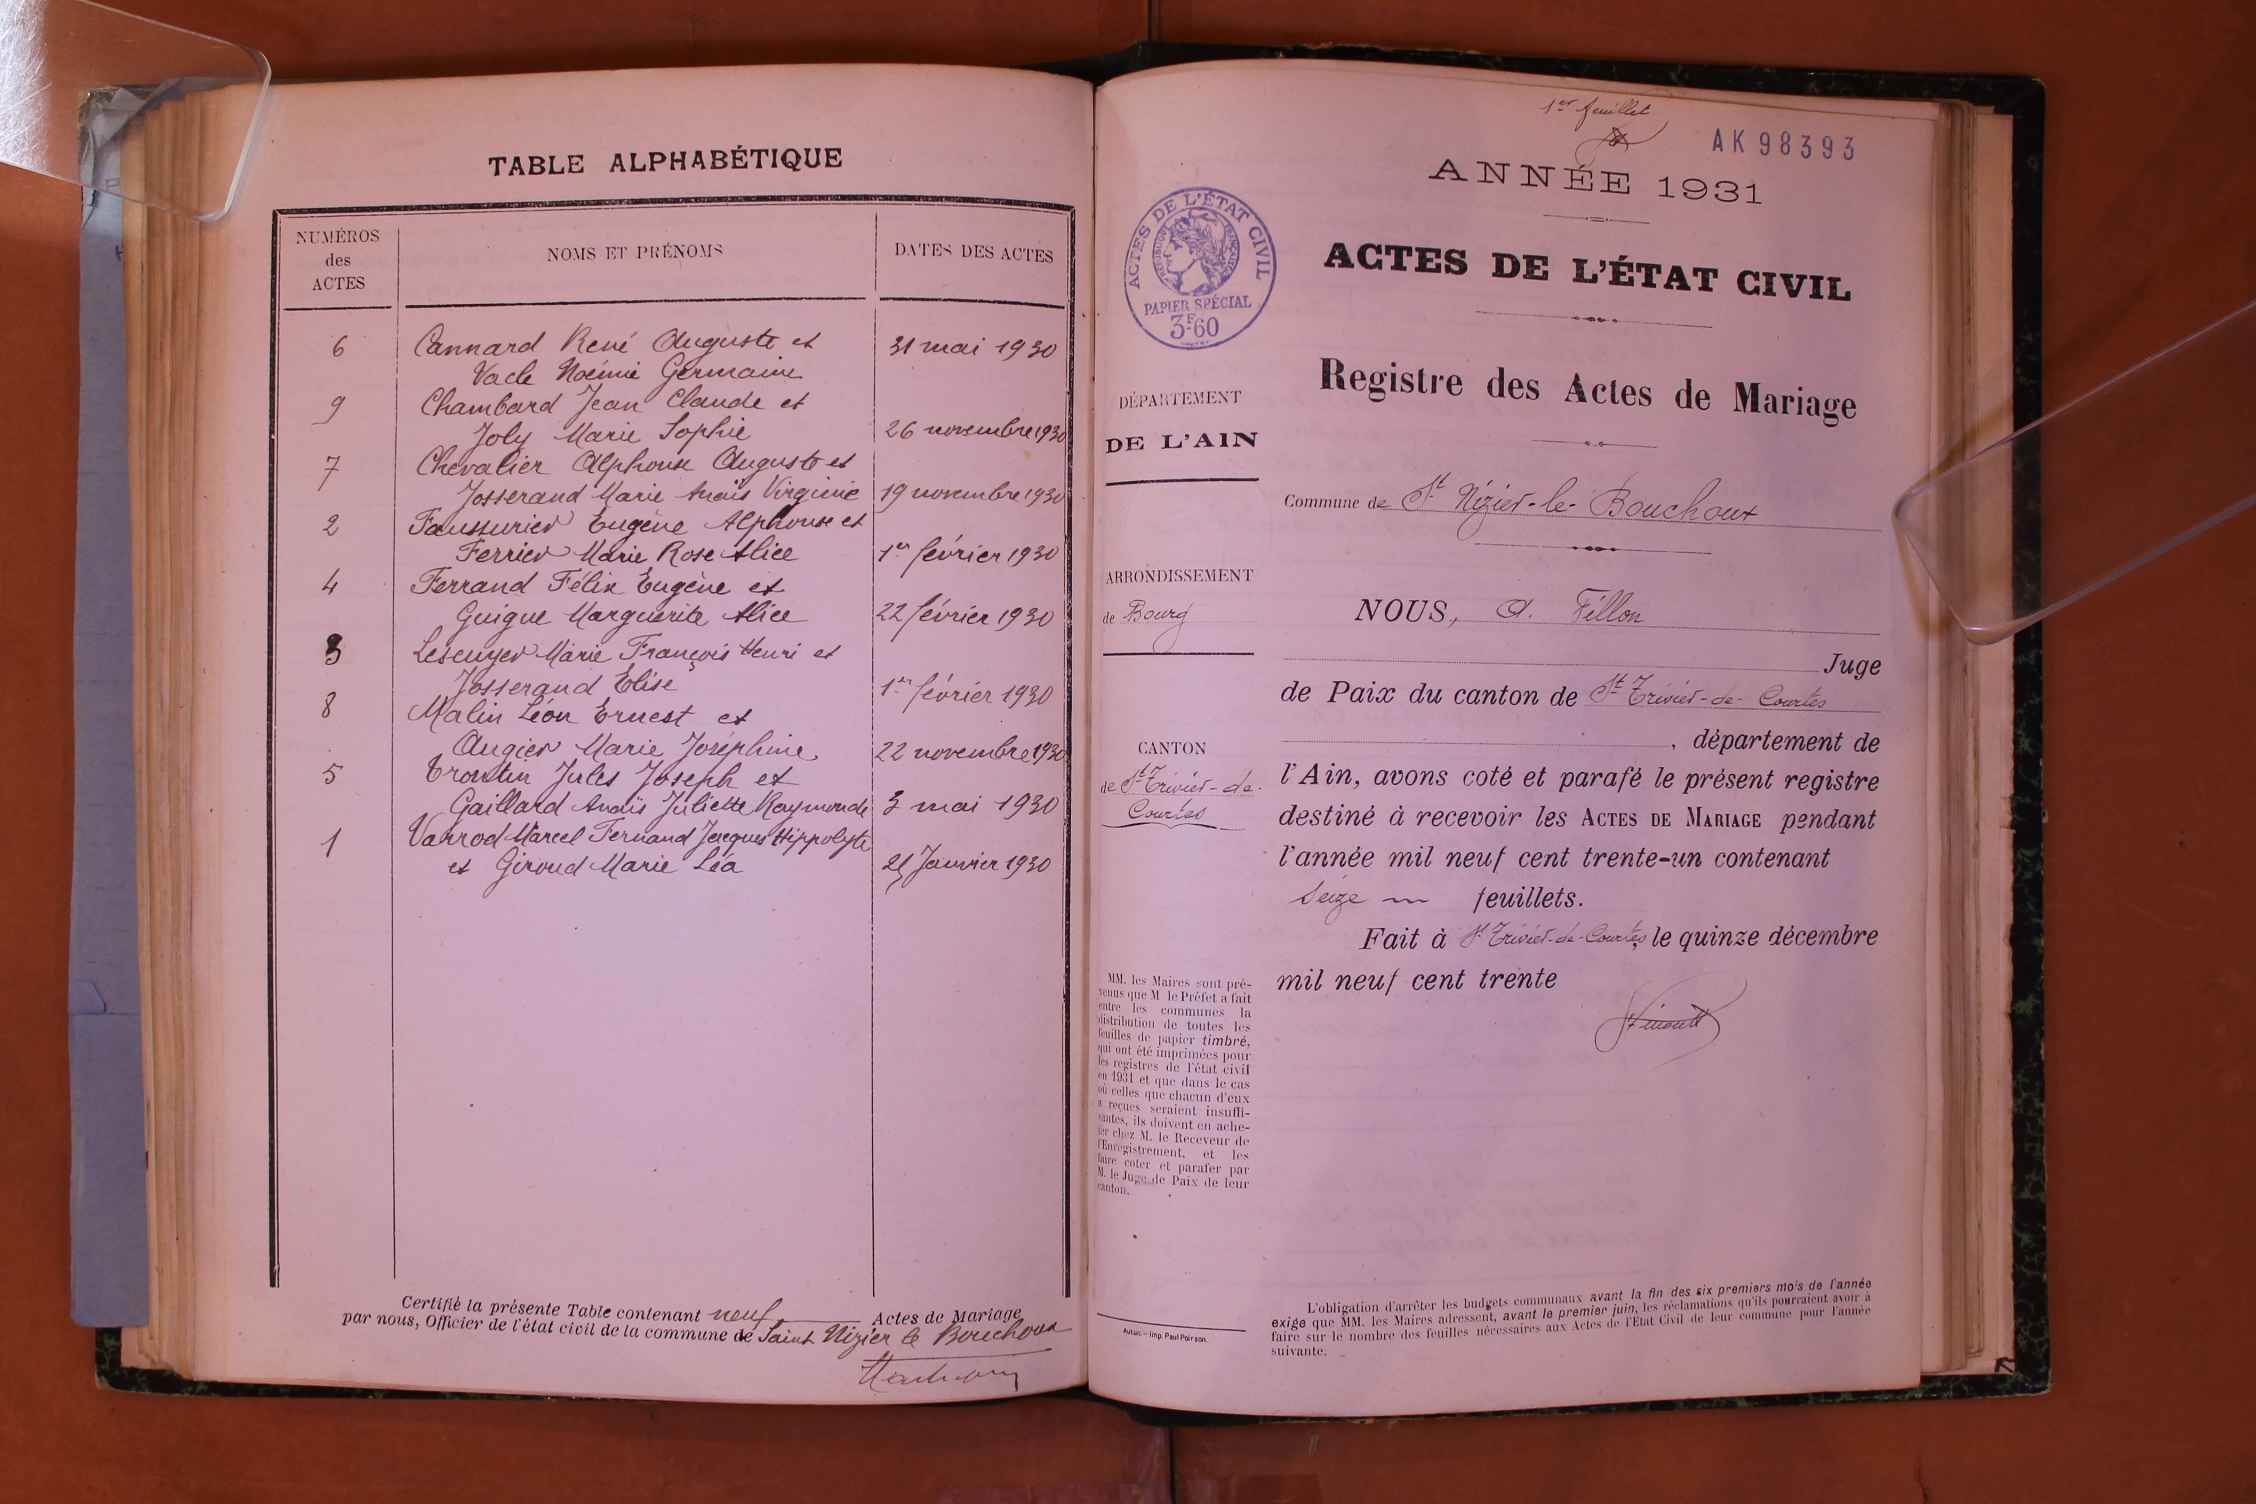 TABLE ALPHABÉTIQUE
NUMÉROS
des
ACTES
NOMS ET PRÉNOMS
DATES DES ACTES
6 Cannard René Auguste et 31 mai 1930
Vacle Noémie Germaine
9 Chambard Jean Claude et
Joly Marie Sophie 26 novembre 1930
7 Chevalier Alphonse Auguste et
Josserand Marie Anaïs Virginie 19 novembre 1930
2 Faussurier Eugène Alphonse et
Ferrier Marie Rose Alice 1er février 1930
4 Ferrand Félix Eugène et
Guigue Marguerite Alice 22 février 1930
3 Lescuyer Marie François Henri et
Josserand Elise 1er février 1930
8 Malin Léon Ernest et
Augier Marie Joséphine 22 novembre 1930
5 Trontin Jules Joseph et
Gaillard Anaïs Juliette Raymonde 3 mai 1930
1 Varrod Marcel Fernand Jacques Hippolyte
et Giroud Marie Léa Janvier 1930
Certifié la présente Table contenant neuf Actes de Mariage
par nous, Officier de l'état civil de la commune de Saint Nizier le Bouchoux
1er feuillet
AK 98393
ANNÉE 1931
ACTES DE L'ÉTAT CIVIL
RÉPUBLIQUE FRANÇAISE
PAPIER SPÉCIAL
3F60
ACTES DE L'ÉTAT CIVIL
Registre des Actes de Mariage
DÉPARTEMENT
DE L'AIN
Commune de St Nizier-le-Bouchoux
ARRONDISSEMENT
de Bourg
NOUS, A. Fillon
Juge
de Paix du canton de St Trivier-de-Courtes
, département de
CANTON
de St Trivier-de-
Courtes
l'Ain, avons coté et parafé le présent registre
destiné à recevoir les ACTES DE MARIAGE pendant
l'année mil neuf cent trente-un contenant
seize feuillets.
Fait à St Trivier-de-Courtes, le quinze décembre
mil neuf cent trente
MM. les Maires sont pré-
venus que M le Préfet a fait
entre les communes la
distribution de toutes les
feuilles de papier timbré,
qui ont été imprimées pour
les registres de l'état civil
en 1931 et que dans le cas
où celles que chacun d'eux
a reçues seraient insuffi-
santes, ils doivent en ache-
ter chez M. le Receveur de
l'Enregistrement, et les
faire coter et parafer par
M. le Juge de Paix de leur
canton.
Autun. — Imp. Paul Poirson.
L'obligation d'arrêter les budgets communaux avant la fin des six premiers mois de l'année
exige que MM. les Maires adressent, avant le premier juin, les réclamations qu'ils pourraient avoir à
faire sur le nombre des feuilles nécessaires aux Actes de l'Etat Civil de leur commune pour l'année
suivante.